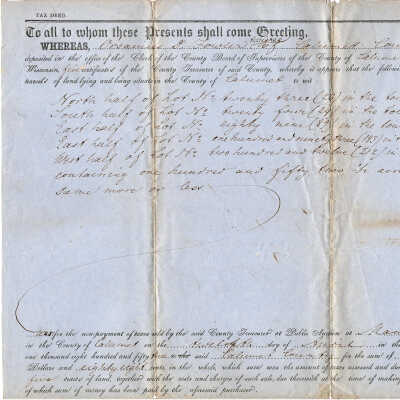 TAX DEED.
To all to whom these Presents shall come Greeting,
WHEREAS, assignee of Calumet Coun
deposited in the office of the Clerk of the County Board of Supervisors of the County of Calume
Wisconsin, five certificates of the County Treasurer of said County, whereby it appears that the followi
tract s of land lying and being situate in the County of Calumet to wit
North half of Lot No twenty three (23) in the tow
South half of Lot No twenty in the to
East half of Lot No eighty nine (89) in the tow
East half of Lot No one hundred and ninety three (193) in t
West half of Lot No two hundred and twelve (212) in
containing one hundred and fifty two acre
same more or less
was for the nonpayment of taxes sold by the said County Treasurer at Public Auction at
in the County of Calumet on the day of April in the
one thousand eight hundred and fifty to the said Calumet County for the sum of
Dollars and eighty eight cents in the whole, which sum was the amount of taxes assessed and du
five tracts of land, together with the costs and charges of such sale, due therewith at the time of making
of which sum of money has been paid by the aforesaid purchaser